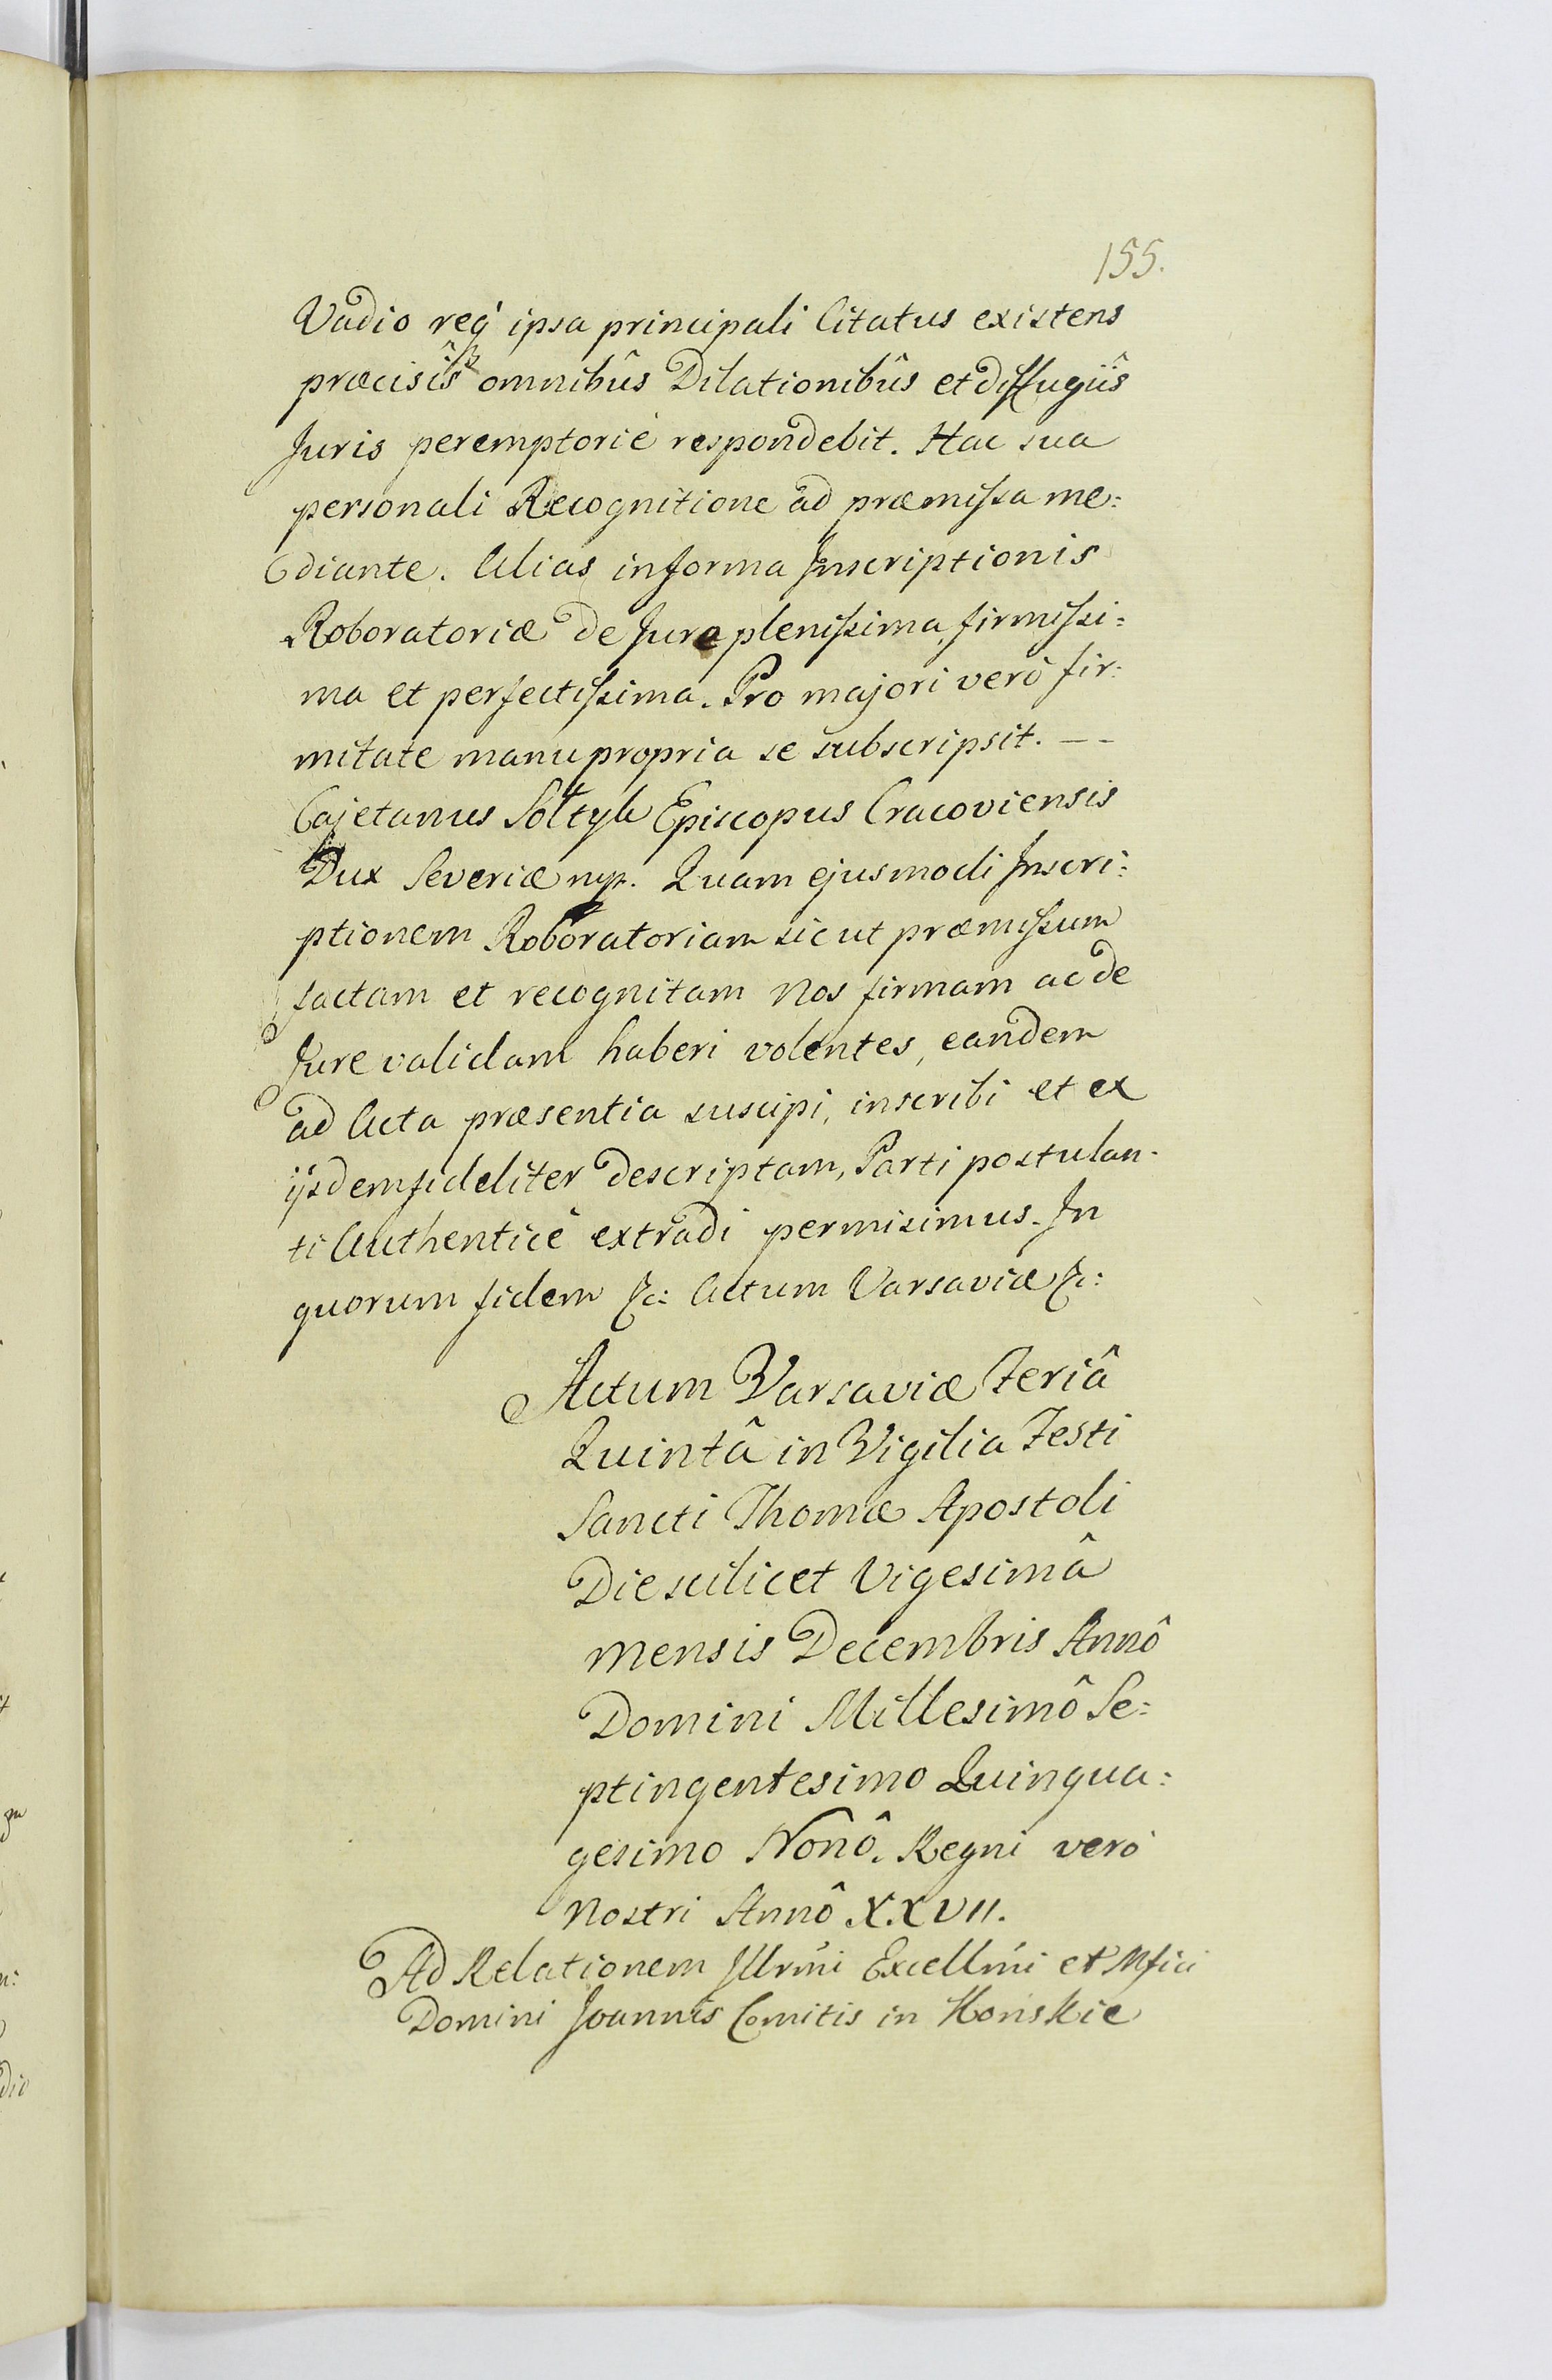 155.
Vadio req' ipsa principali Citatus existens
præcisis omnibûs Dilationibûs et diffugiîs
Juris peremptoriè respondebit. Hac sua
personali Recognitione ad præmissa me:
diante. Alias in forma Inscriptionis
Roboratoriæ de Jure plenissima, firmissi:
ma et perfectissima. Pro majori verò fir:
mitate manu propria se subscripsit. —
Cajetanus Sołtyk Episcopus Cracoviensis
Dux Severiæ mp. Quam ejusmodi Inscri:
ptionem Roboratoriam sicut præmissum
factam et recognitam Nos firmam ac de
Jure validam haberi volentes, eandem
ad Acta præsentia suscipi, inscribi et ex
ijsdem fideliter descriptam, Parti postulan-
ti Authenticè extradi permisimus. In
quorum fidem &c: Actum Varsaviæ &c:
Actum Varsaviæ Feriâ
Quintâ in Vigilia Festi
Sancti Thomæ Apostoli
Die scilicet Vigesimâ
mensis Decembris Annô
Domini Millesimô Se:
ptingentesimo Quinqua:
gesimo Nonô. Regni verò
Nostri Annô XXVII.
Ad Relationem Illrmi Excellmi et Mfici
Domini Joannis Comitis in Końskie